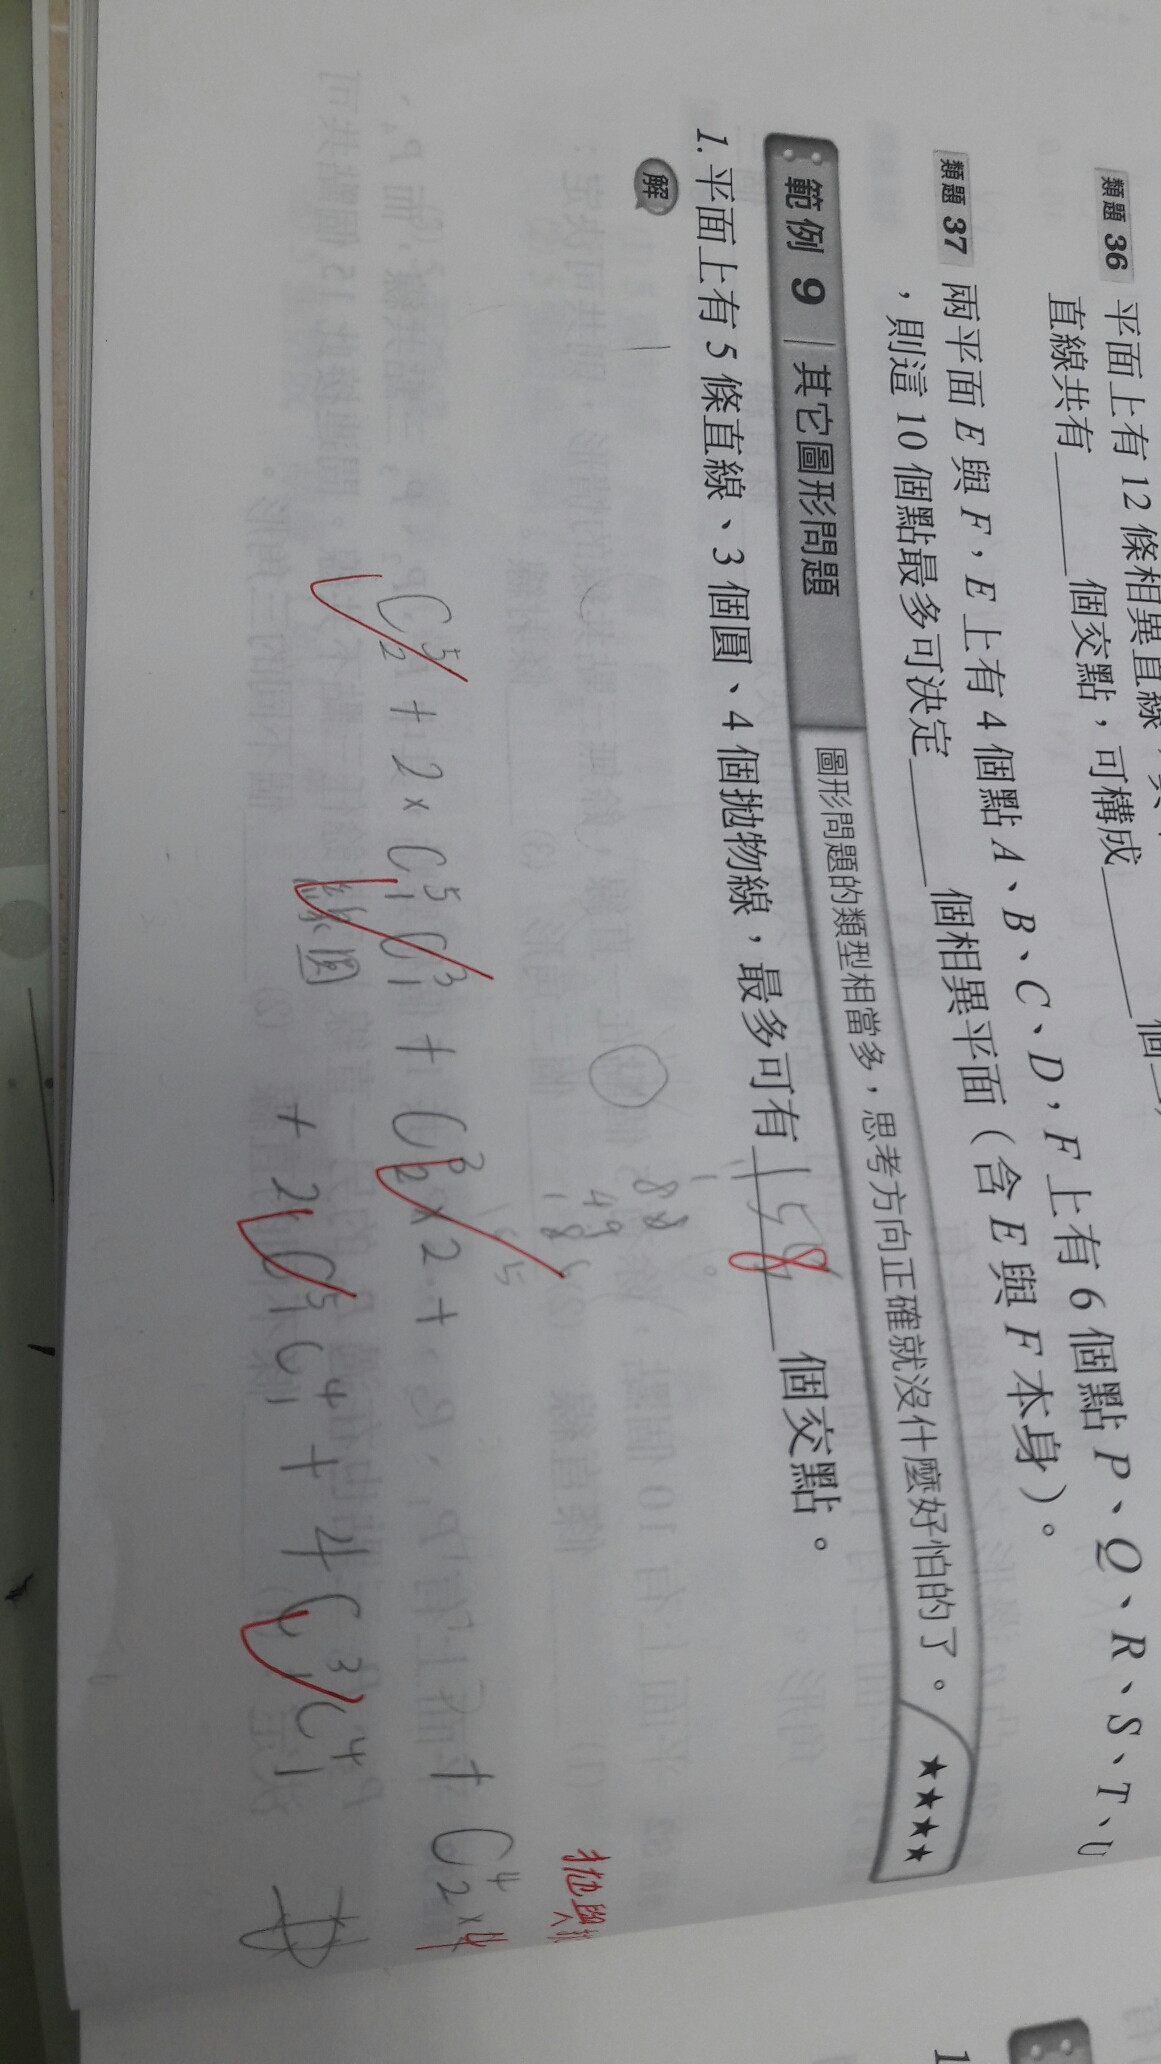 類題 36 平面上有 12 條相異直線
直線共有______個交點，可構成______個
類題 37 兩平面 E 與 F，E 上有 4 個點 A、B、C、D，F 上有 6 個點 P、Q、R、S、T、U
，則這 10 個點最多可決定______個相異平面（含 E 與 F 本身）。
範例 9 其它圖形問題 圖形問題的類型相當多，思考方向正確就沒什麼好怕的了。 ★★★★
1. 平面上有 5 條直線、3 個圓、4 個拋物線，最多可有 158 個交點。
解
拋與拋
C⁵₂ + 2 × C⁵₁ C³₁ + C³₂ × 2 + C⁴₂ × 4
線 圓
+ 2 C⁵₁ C⁴₁ + 4 C³₁ C⁴₁